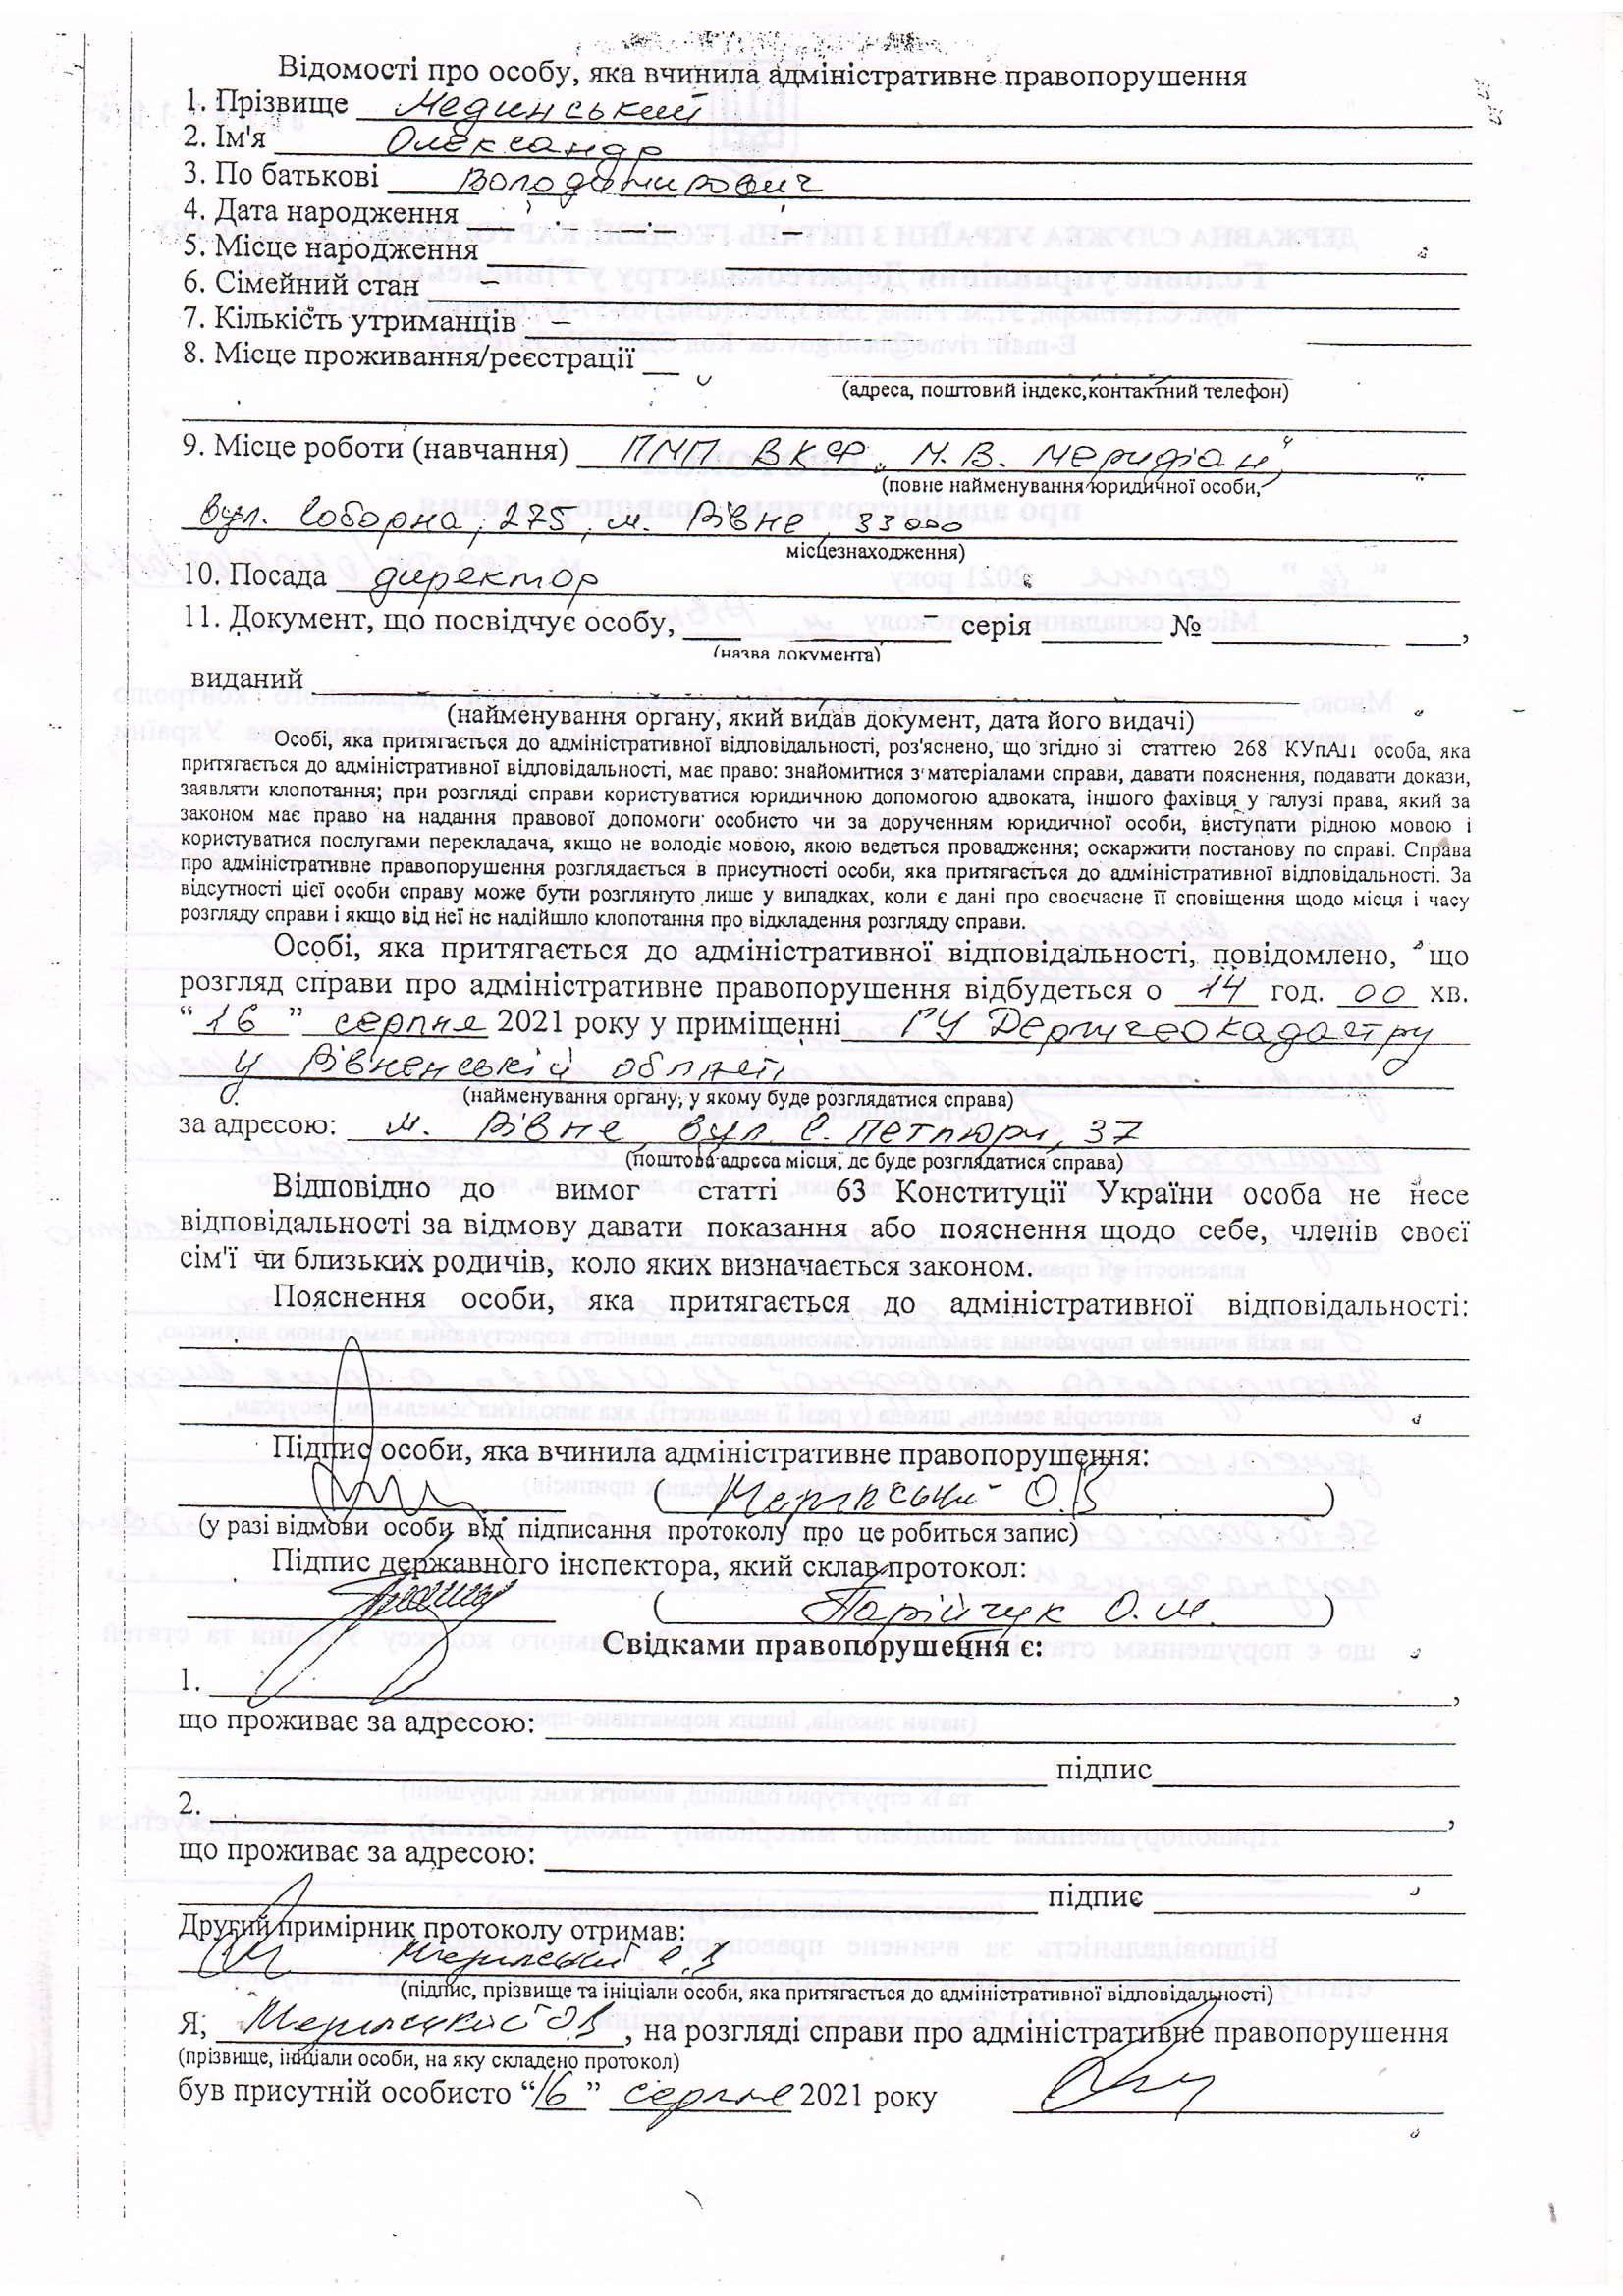 Відомості про особу, яка вчинила адміністративне правопорушення
1. Прізвище Мединський
2. Ім'я Олександр
3. По батькові Володимирович
4. Дата народження
5. Місце народження
6. Сімейний стан –
7. Кількість утриманців –
8. Місце проживання/реєстрації
(адреса, поштовий індекс,контактний телефон)
9. Місце роботи (навчання) ПМП ВКФ „М.В. Меридіан"
(повне найменування юридичної особи,
вул. Соборна, 275, м. Рівне, 33000
місцезнаходження)
10. Посада директор
11. Документ, що посвідчує особу, серія № ,
(назва документа)
виданий
(найменування органу, який видав документ, дата його видачі)
Особі, яка притягається до адміністративної відповідальності, роз'яснено, що згідно зі статтею 268 КУпАП особа, яка
притягається до адміністративної відповідальності, має право: знайомитися з матеріалами справи, давати пояснення, подавати докази,
заявляти клопотання; при розгляді справи користуватися юридичною допомогою адвоката, іншого фахівця у галузі права, який за
законом має право на надання правової допомоги особисто чи за дорученням юридичної особи, виступати рідною мовою і
користуватися послугами перекладача, якщо не володіє мовою, якою ведеться провадження; оскаржити постанову по справі. Справа
про адміністративне правопорушення розглядається в присутності особи, яка притягається до адміністративної відповідальності. За
відсутності цієї особи справу може бути розглянуто лише у випадках, коли є дані про своєчасне її сповіщення щодо місця і часу
розгляду справи і якщо від неї не надійшло клопотання про відкладення розгляду справи.
Особі, яка притягається до адміністративної відповідальності, повідомлено, що
розгляд справи про адміністративне правопорушення відбудеться о 14 год. 00 хв.
“16” серпня 2021 року у приміщенні ГУ Держгеокадастру
у Рівненській області
(найменування органу, у якому буде розглядатися справа)
за адресою: м. Рівне, вул. С. Петлюри, 37
(поштова адреса місця, де буде розглядатися справа)
Відповідно до вимог статті 63 Конституції України особа не несе
відповідальності за відмову давати показання або пояснення щодо себе, членів своєї
сім'ї чи близьких родичів, коло яких визначається законом.
Пояснення особи, яка притягається до адміністративної відповідальності:
Підпис особи, яка вчинила адміністративне правопорушення:
( Мединський О.В )
(у разі відмови особи від підписання протоколу про це робиться запис)
Підпис державного інспектора, який склав протокол:
( Парійчук О.М. )
Свідками правопорушення є:
1. ,
що проживає за адресою:
підпис
2. ,
що проживає за адресою:
підпис
Другий примірник протоколу отримав:
Мединський О.В
(підпис, прізвище та ініціали особи, яка притягається до адміністративної відповідальності)
Я, Мединський О.В , на розгляді справи про адміністративне правопорушення
(прізвище, ініціали особи, на яку складено протокол)
був присутній особисто “16” серпня 2021 року